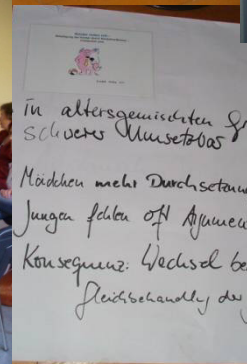 in altersgemischten
schwerer Umsetzbar
Mädchen mehr Durchsetzun
Jungen fehlen oft Argumen
Konsequenz: Wechsel be
Gleichbehandlg der